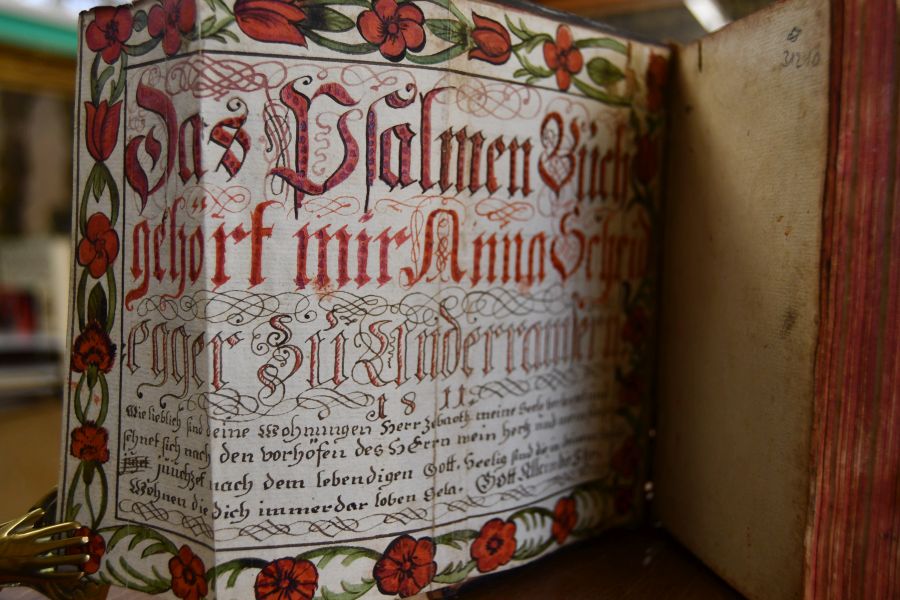 31210
Das Psalmen Büch
gehört mir Anna Scheid
egger Zü Underramsern
1811.
Wie lieblich sind deine Wohnungen Herr Zebaoth, meine Seele
sehnet sich nach den vorhöfen des HErrn mein hertz und
jüüchzet nach dem lebendigen Gott. Seelig sind die in
Wohnen die Dich immerdar loben Sela. Gott Allein die Ehre